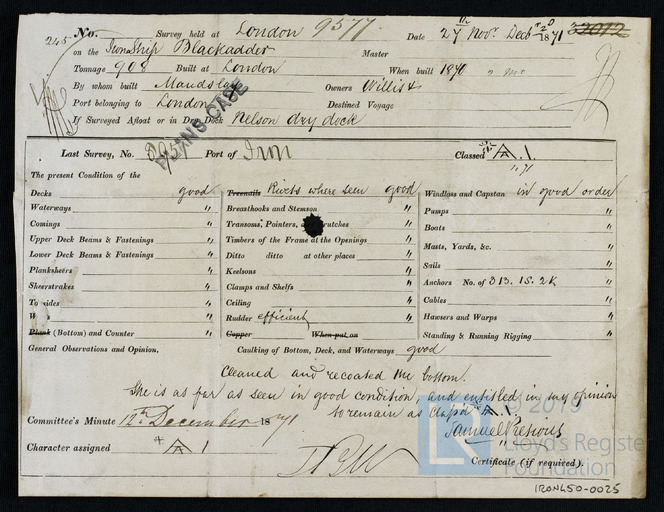 245 No. Survey held at London 9577 Date 27th Novr. Decb 2d 1871 32072
on the Iron Ship Blackadder Master
Tonnage 908 Built at London When built 1870
By whom built Maudslay Owners Willis &
Port belonging to London Destined Voyage
If Surveyed Afloat or in Dry Dock Nelson dry dock
PLANS CASE
Last Survey, No. Port of Iron Classed A.1.
The present Condition of the
Decks good
Waterways "
Comings "
Upper Deck Beams & Fastenings "
Lower Deck Beams & Fastenings "
Planksheers "
Sheerstrakes "
Topsides "
Wales "
Plank (Bottom) and Counter "
Treenails Rivets where seen good
Breasthooks and Stemson "
Transoms, Pointers, Crutches "
Timbers of the Frame at the Openings "
Ditto ditto at other places "
Keelsons "
Clamps and Shelfs "
Ceiling "
Rudder efficient "
Copper When put on
Windlass and Capstan in good order
Pumps "
Boats "
Masts, Yards, &c. "
Sails "
Anchors No. of 3B. 1S. 2K "
Cables "
Hawsers and Warps "
Standing & Running Rigging "
General Observations and Opinion. Caulking of Bottom, Deck, and Waterways good
Cleaned and recoated the bottom.
She is as far as seen in good condition, and entitled in my opinion
to remain as class'd A.1.
Committee's Minute 12th December 1871
Samuel Pretious
Character assigned A 1
Certificate (if required).
© 2019
Lloyd's Register
Foundation
IRON450-0025